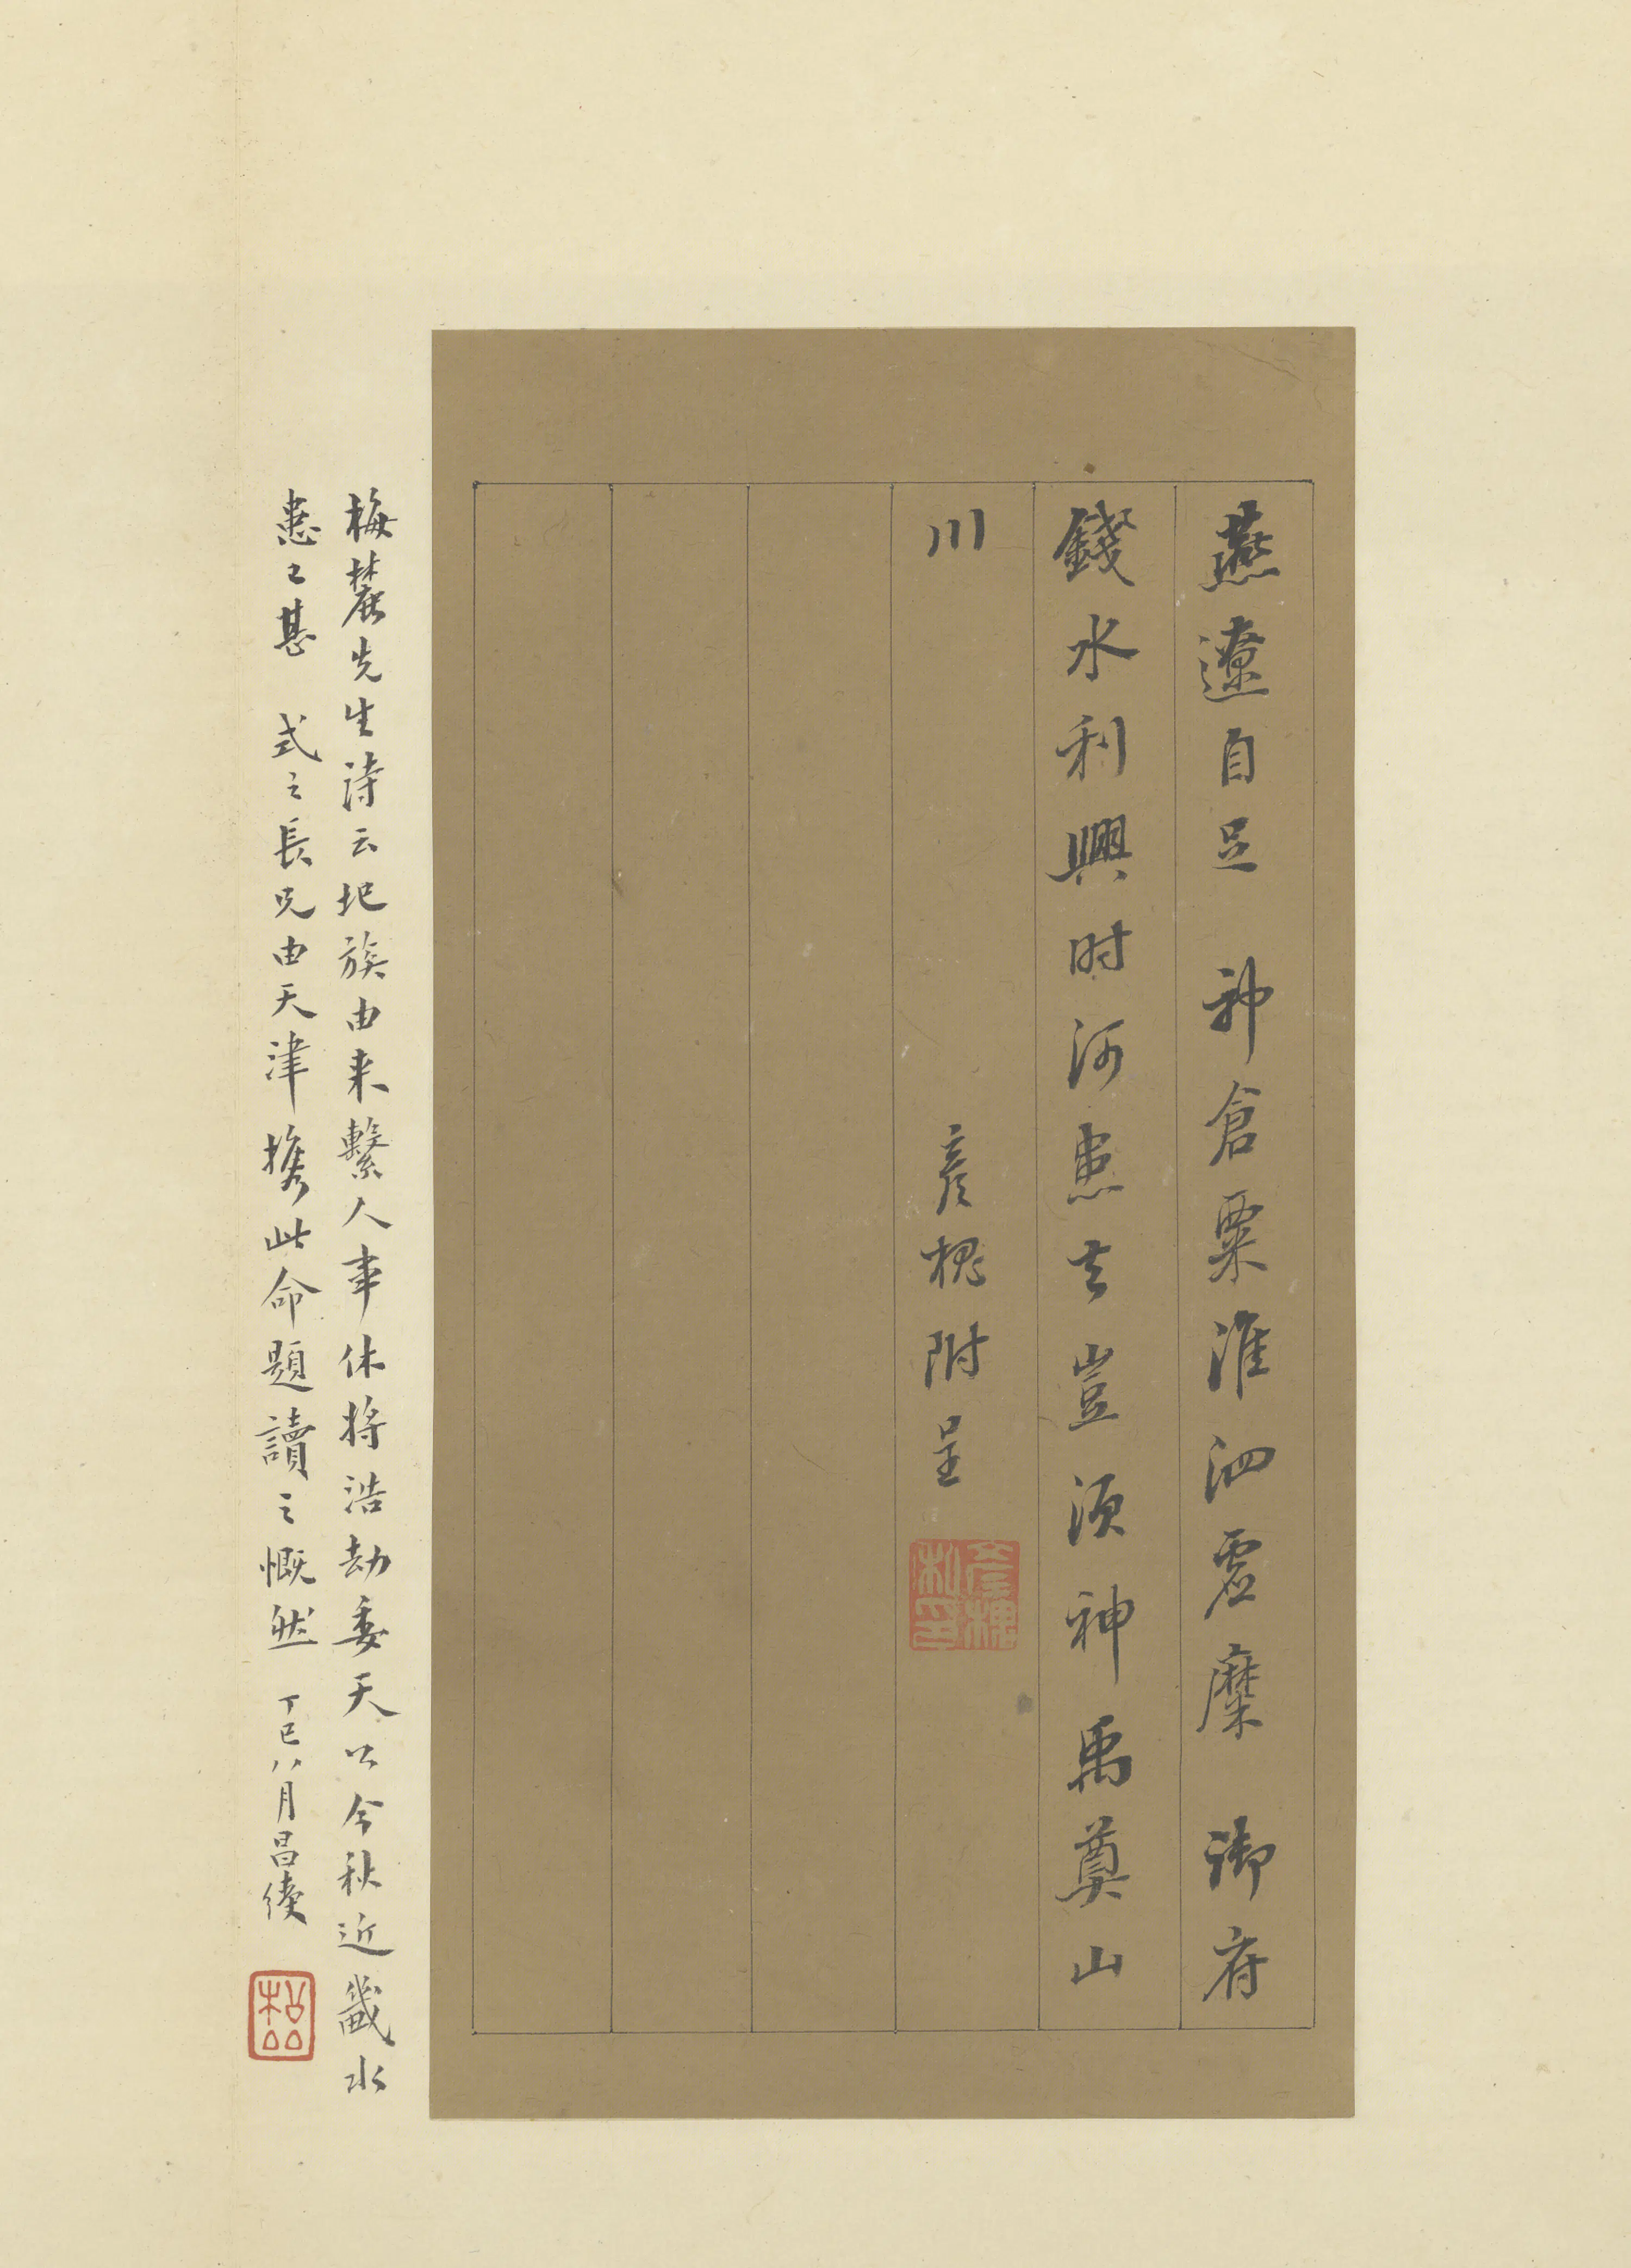 燕遼自足 神倉粟淮泗虛糜 御府
錢水利興时河患去豈須神禹奠山
川
彥槐附呈
彥槐私印
梅麓先生詩云圯族由来繫人事休將浩劫委天公今秋近畿水
患亡甚 式之長兄由天津携此命題讀之慨然 丁巳八月昌綬